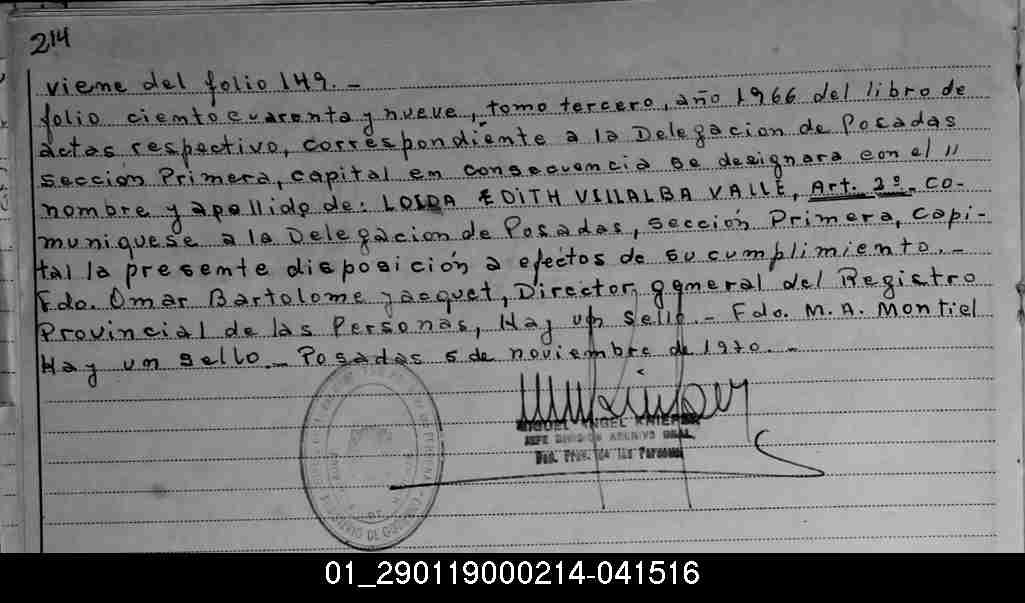 214
viene del folio 149.-
folio ciento cuarenta y nueve, tomo tercero, año 1966 del libro de
actas respectivo, correspondiente a la Delegacion de Posadas
sección Primera, capital en consecuencia se designara con el "
nombre y apellido de: LOIDA EDITH VILLALBA VALLE, Art. 2º. Co-
muniquese a la Delegacion de Posadas, sección Primera, Capi-
tal la presente disposición a efectos de su cumplimiento.-
Fdo. Omar Bartolome Jacquet, Director general del Registro
Provincial de las Personas, Hay un sello.- Fdo. M.A. Montiel
Hay un sello.- Posadas 5 de noviembre de 1970.-
MIGUEL ANGEL KNIEPER
JEFE DIVISION ARCHIVO GRAL.
de las Personas
01_290119000214-041516